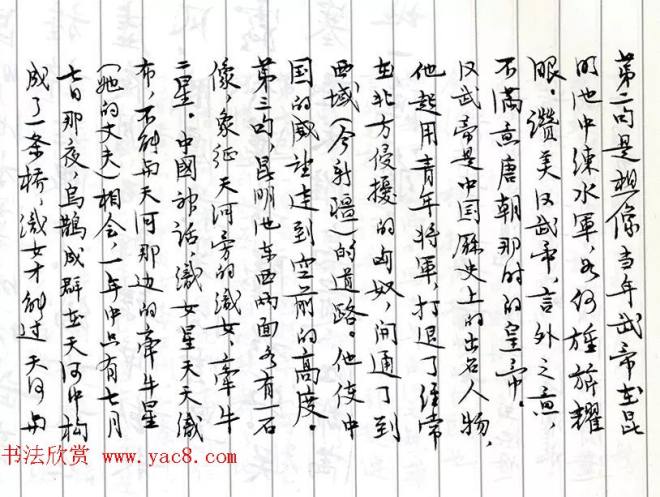 第二句是想像当年武帝在昆
明池中練水軍，如何旌旂耀
眼。讚美汉武帝，言外之意，
不满意唐朝那时的皇帝。
汉武帝是中国歷史上的出名人物，
他起用青年将軍，打退了经常
在北方侵擾的匈奴，開通了到
西域（今新疆）的道路。他使中
国的威望走到空前的高度。
第三句，昆明池东西两面各有一石
像，象征天河旁的織女、牽牛
二星。中國神话，織女星天天織
布，不能与天河那边的牽牛星
（她的丈夫）相会，一年中只有七月
七日那夜，乌鵲成群在天河中构
成了一条橋，織女才能过天河与
书法欣赏 www.yac8.com